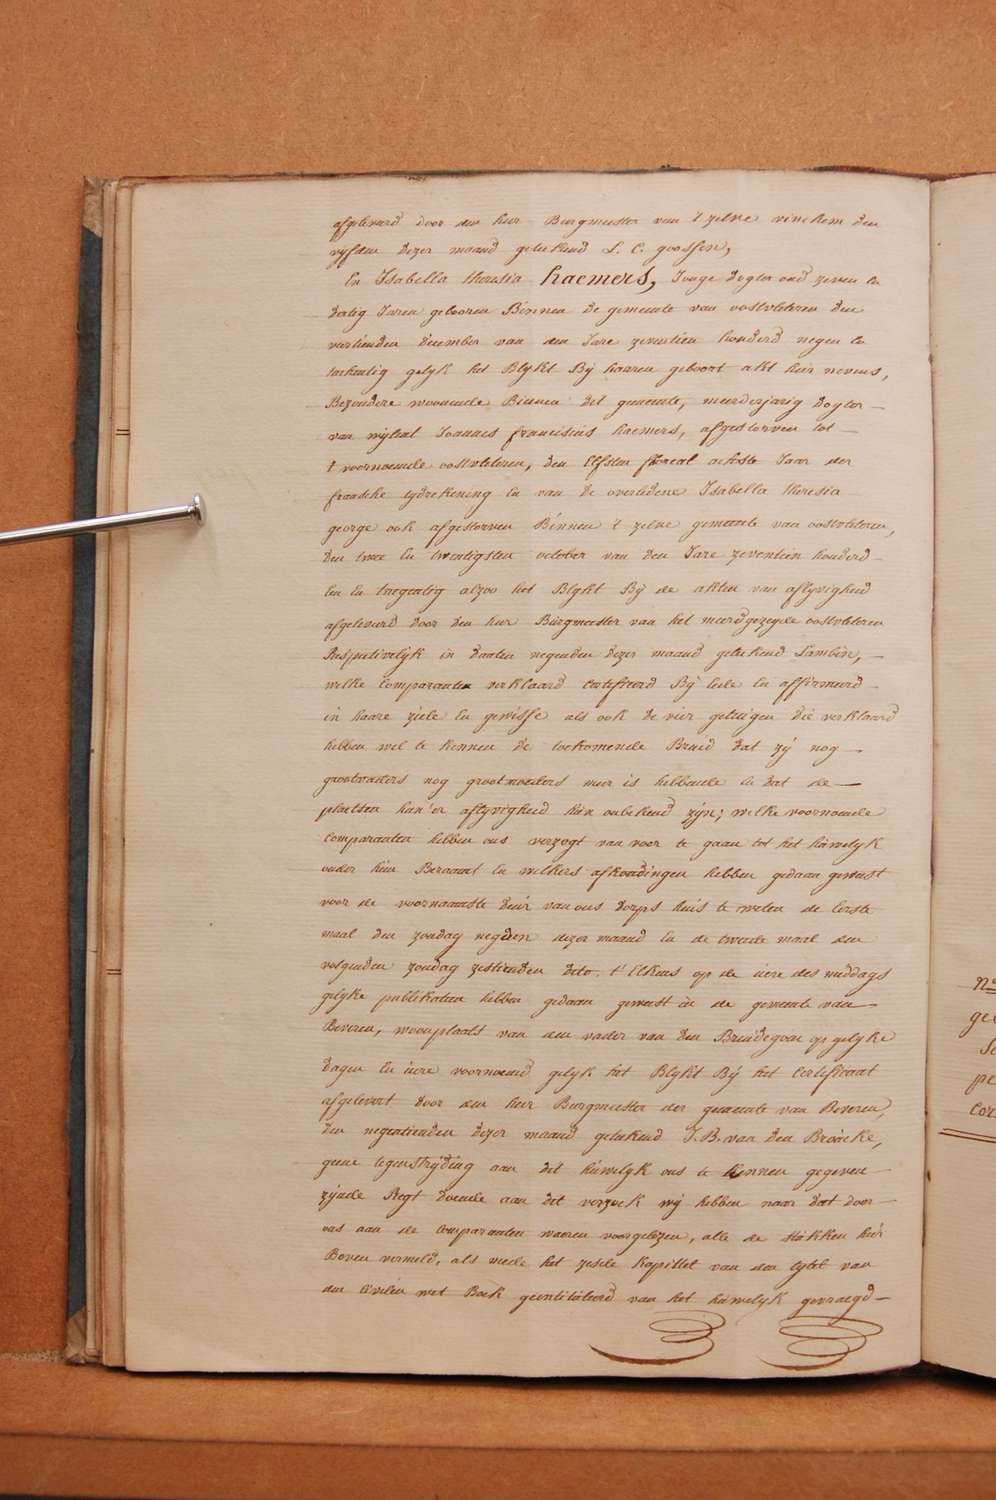 afgeleverd door den heer Burgmeester van 't zelve vinchem den
vyfden dezer maand geteekend L. C. goossen,
En Isabella theresia haemers, Jonge dogter oud zeven en
dertig Jaren gebooren Binnen de gemeente van oostvleteren den
veertienden december van den Jare zeventien honderd negen en
tachentig gelyk het Blykt By haaren geboort akt hier nevens,
Bezondere woonende Binnen dit gemeente, meerderjarig dogter
van wylent Joannes franciscus haemers, afgestorven tot
t voornoemde oostvleteren, den Elfsten floreal achste Jaar der
fransche tydrekening En van de overledene Isabella theresia
george ook afgestorven Binnen 't zelve gemeente van oostvleteren,
den twee En twentigsten october van den Jare zeventien honderd
Een En taegentig alzoo het Blykt By de akten van aflyvigheid
afgeleverd door den heer Burgmeester van het meerdgezeyde oostvleteren
Respectivelyk in daaten negenden dezer maand geteekend Lambin,
welke Comparanten verklaard Certifieerd By Eede En affirmeerd
in haare ziele En gewisse als ook de vier getuigen die verklaard
hebben wel te kennen de toekomende Bruid dat zy nog
grootvaders nog grootmoeders meer is hebbende En dat de
plaetsen hun'er aflyvigheid hun onbekend zyn; welke voornoemde
Comparanten hebben ons verzogt van voor te gaan tot het huwelyk
onder hun Beraamt En welkers afkondingen hebben gedaan geweest
voor de voornaamste deur van ons dorps huis te weten de Eerste
maal den zondag negden dezer maand En de tweede maal den
volgenden zondag zestienden dito. t' Elkens op de uere des middags
gelyke publikatien hebben gedaan geweest in de gemeente van
Beveren, woonplaats van den vader van den Bruidegom op gelyke
dagen En uere voornoemd gelyk het Blykt By het Certificaat
afgelevert door den heer Burgmeester der gemeente van Beveren,
den negentienden dezer maand geteekend J. B. van den Broucke,
geene tegenstryding aan dit huwelyk ons te kennen gegeven
zynde Regt doende aan dit verzoek wy hebben naar dat door
ons aan de Comparanten waeren voorgelezen, alle de stukken hier
Boven vermeld, als mede het zesde Kapittel van den tytel van
den Civilen wet Boek geintituleerd van het huwelyk gevraegd
N°